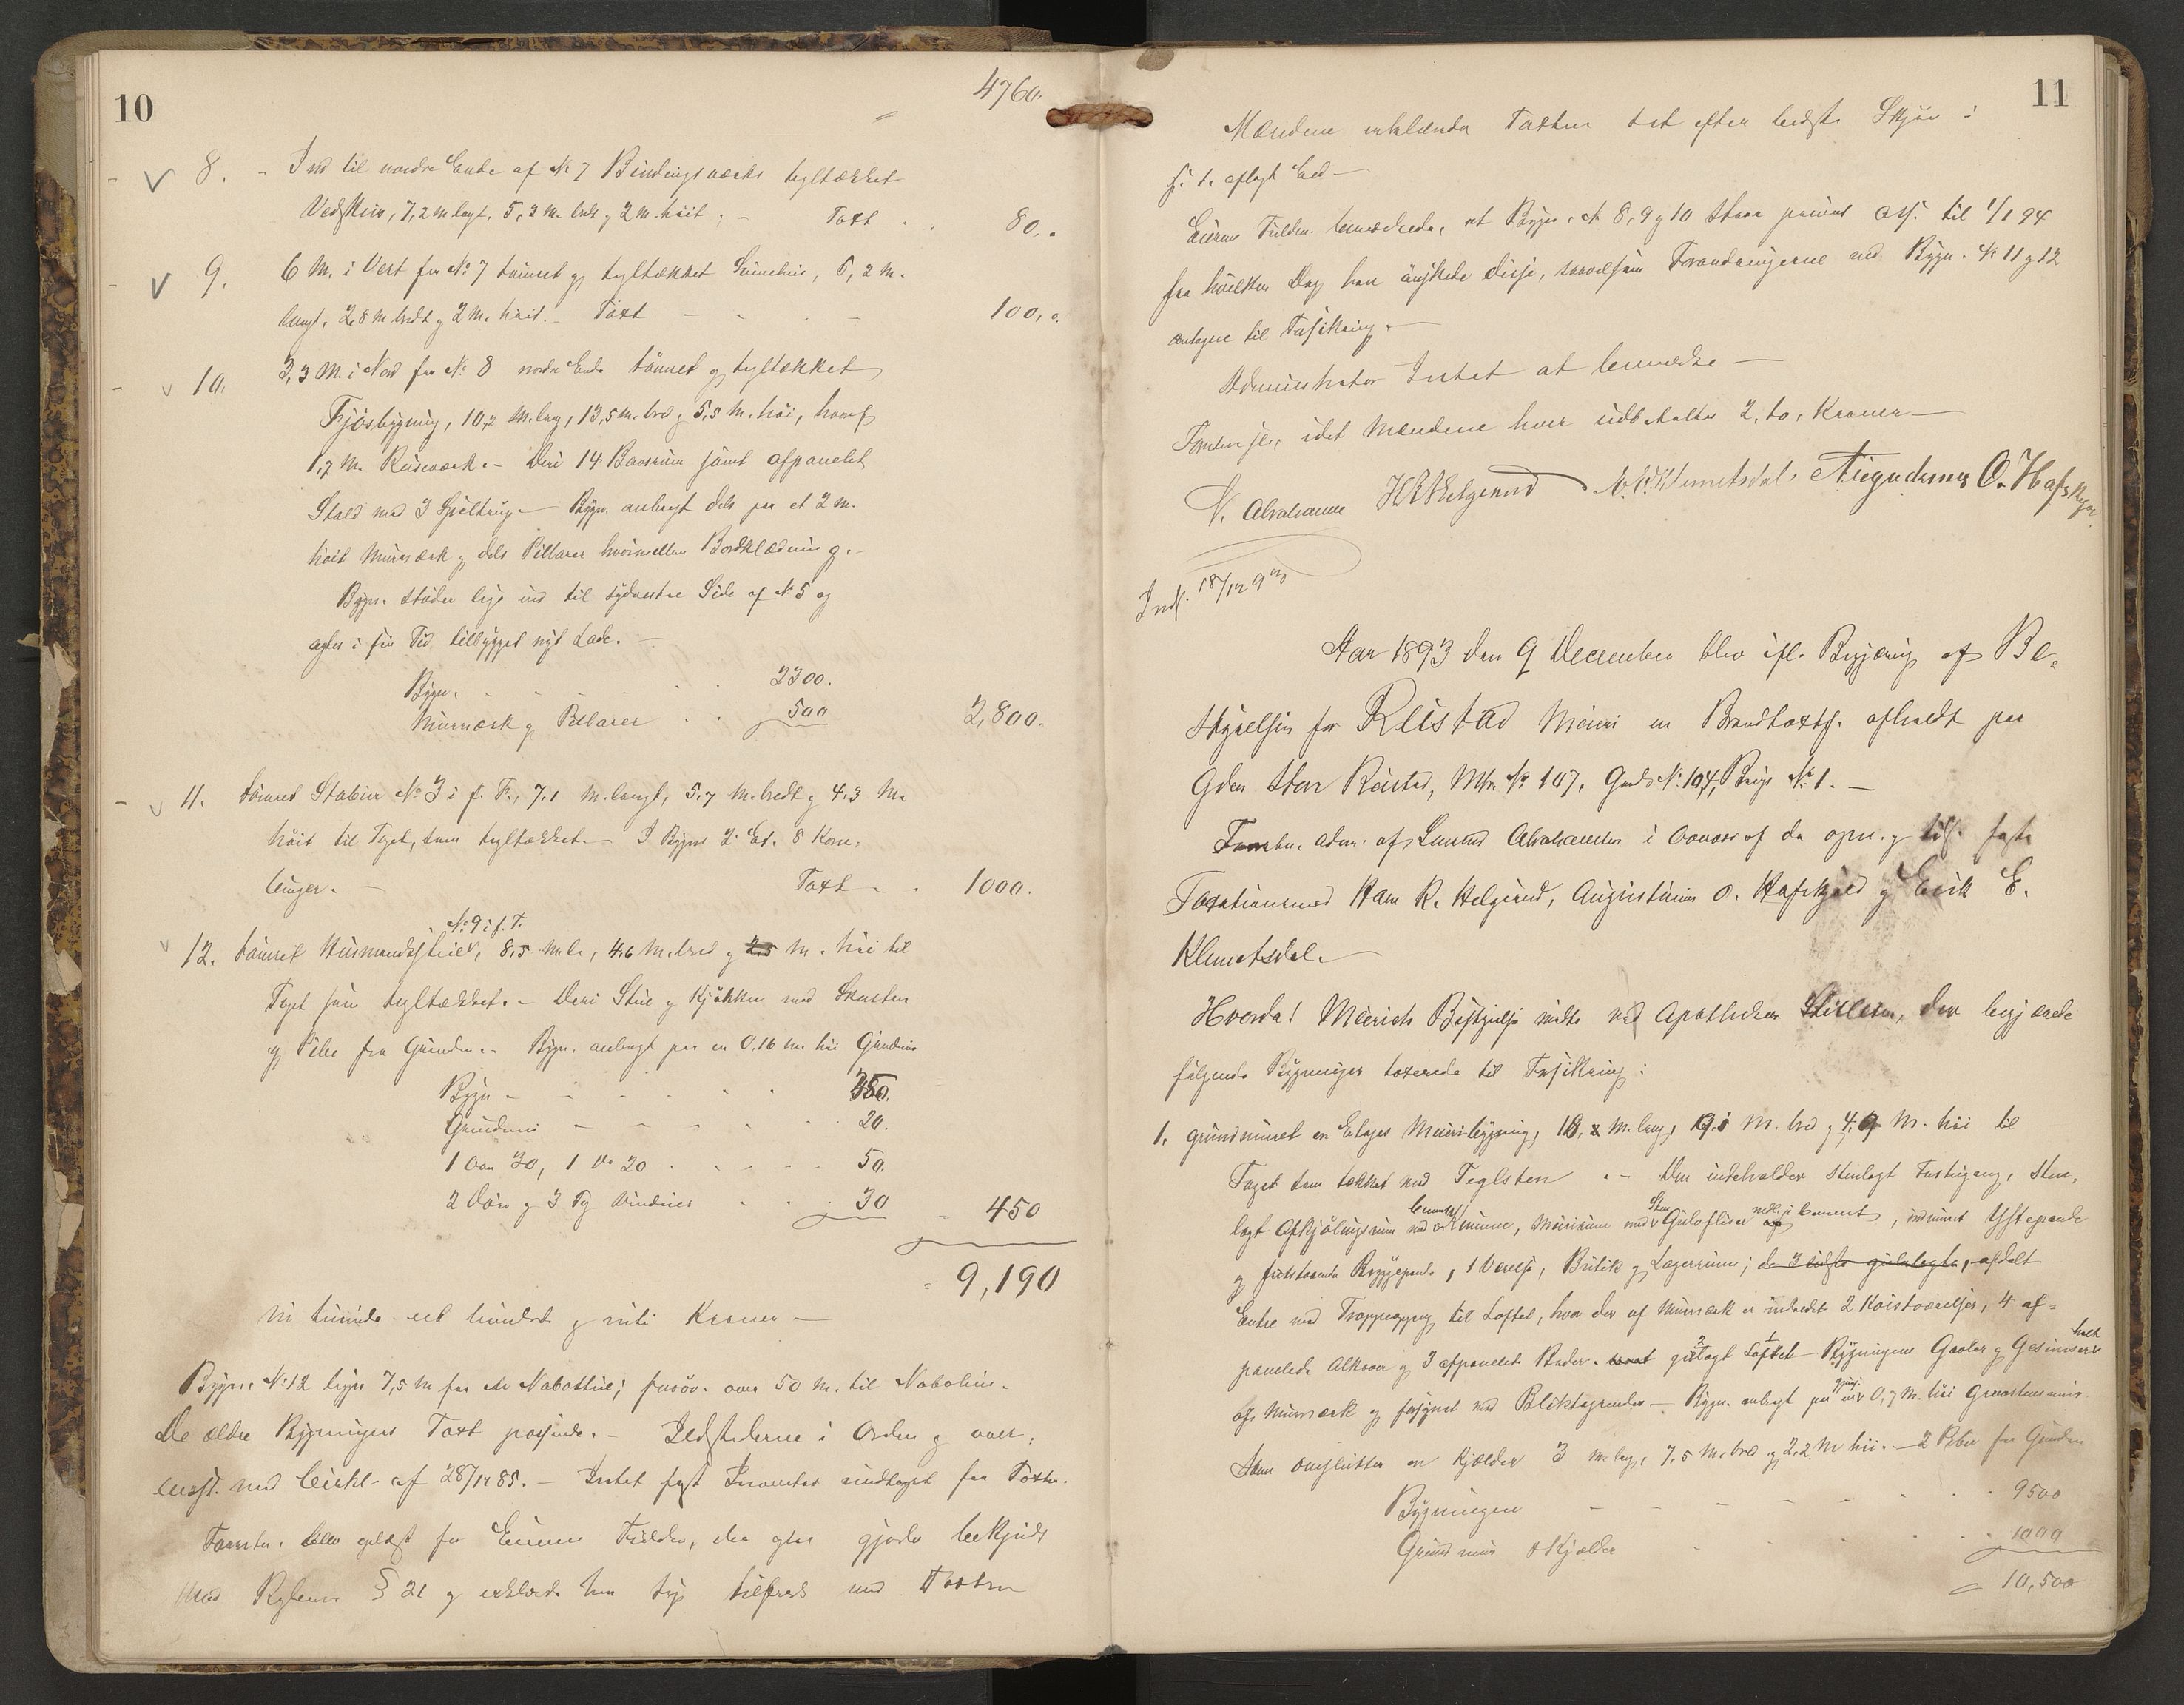 10
4760.
8. - Ind til nordre Ende af № 7 Bindingsværks tegltækket
Vedskur, 7,2 m langt, 5,3 m. bredt og 2 m. høit. - Taxt 80..
9. 6 M. i Vest fra № 7 tømret og tegltækket 5,2 m.
langt, 2,8 m bredt og 2 m. høit. - Taxt - - 100,0.
10. 3,3 M. i Nord fra № 8 nordre Ende tømret og tegltækket
Fjøsbygning, 10,2 m. lang, 13,5 m. bred og 5,5 m. høi, hvoraf
1,7 m. Reisverk. - Deri 14 Baasrum samt afpanelet
Stald med 3 Spiltaug. - Bygn. anbragt dels paa et 2 m.
høit Murværk og dels Pillarer hvorimellem Bordklædning. -
Bygn. støder lige ind til sydvestre Side af № 5 og
agtes i sin Tid tilbygget nyt Lade. -
Bygn. - - - 2300.
Murværk og Pillarer . . 500 2,800.
11. tømret Stabur № 3 i f. F., 7,1 m. langt, 5,7 m. bredt og 4,3 m.
høit til Taget, som tegltækket. - I Bygn 2 Et. 8 Korn-
binger. - Taxt . . 1000.
№ 9 i f. F.
12. tømret Husmandsstue, 8,5 m. l., 4,6 m. bred og 2,5 m. høi til
Taget som tegltækket. - Deri Stue og Kjøkken med Skorsten
og Pibe fra Grunden. - Bygn. anbragt paa en 0,16 m. høi Grundmur
Bygn - - - 350.
Grundmur - - - 20.
1 Ovn 30, 1 do 20 . . . 50.
2 Døre og 3 Fg Vinduer . . 30 450
9,190
ni tusinde et hundrede og niti Kroner -
Bygn. № 12 ligger 7,5 m fra Nabostue; forøv. over 50 m. til Nabohus.
De ældre Bygningers Taxt passende. - Ildstederne i Orden og over-
ensst. med Cirkl. af 28/12 85. - Intet fast Inventar undtaget fra Taxten.
Forretn. blev oplæst for Eieren Fulden, der gjordes bekjendt
med Reglernes § 21 og erklærede han sig tilfreds med Taxten
11
Mændene erklærede Taxten sat efter bedste Skjøn i
H. t. aflagt Ed -
Eieren Fulden bemærkede, at Bygn. № 8, 9 og 10 staar privat ass. til 1/1 94
fra hvilken Dag han ønskede disse, saavelsom Forandringerne ved Bygn. № 11 og 12
antagne til Forsikring. -
Administrator Intet at bemærke -
Forretn. sl., idet Mændene hver udbetaltes 2,40, Kroner -
N. Abrahamsen HRHelgerud E.E.Klemetsdal Augustinus O. Hafskjold
Inds. 18/12 93
Aar 1893 den 9 December blev ifl. Begjæring af Be-
styrelsen for Reistad Meieri en Brandtaxtf. afholdt paa
Gden Store Reistad, Mtr. № 107, Gards № 104, Brugs № 1. -
Forretn. adm. af Lensmd Abrahamsen i Overvær af de opn. og tils. faste
Taxationsmænd Hans R. Helgerud, Augustinus O. Hafskjold og Erik E.
Klemetsdal. -
Hvorda! Meiriets Bestyrelse mødte ved Apotheker, der begjærede
følgende Bygninger taxerede til Forsikring:
1. grundmuret en Etages Meieribygning, m. lang, m. bred og 4,9 m. høi til
Taget som tækket med Teglsten. - Den indeholder stenlagt Indgang, sten-
lagt Afkjølingsrum med cementRenner, Meierirum med Sten Gulvfliser nedl. i Cement, indmuret Ystepande
og fritstaaende Bryggepande, 1 Værelse, Butik og Lagerrum; de 3 sidste gulvlagte, afdelt
Entre med Trappeopgang til Loftet, hvor der af Murværk er indredet 2 Kvistværelser, 4 af-
panelede Alkover og 3 afpanelede Boder. gulvlagt Loftet - Bygningens Gavler og Gesimser helt
af Murværk og forsynet med Bliktagrender. - Bygn. anbragt paa en 0,7 m. høi Graastensmur
som omslutter en Kjælder 3 m. lang, 7,5 m. bred og 2,2 m høi. - 2 Piber fra Grunden
Bygningen - - - 9500
Grundmur & Kjælder . . . 1000
10,500